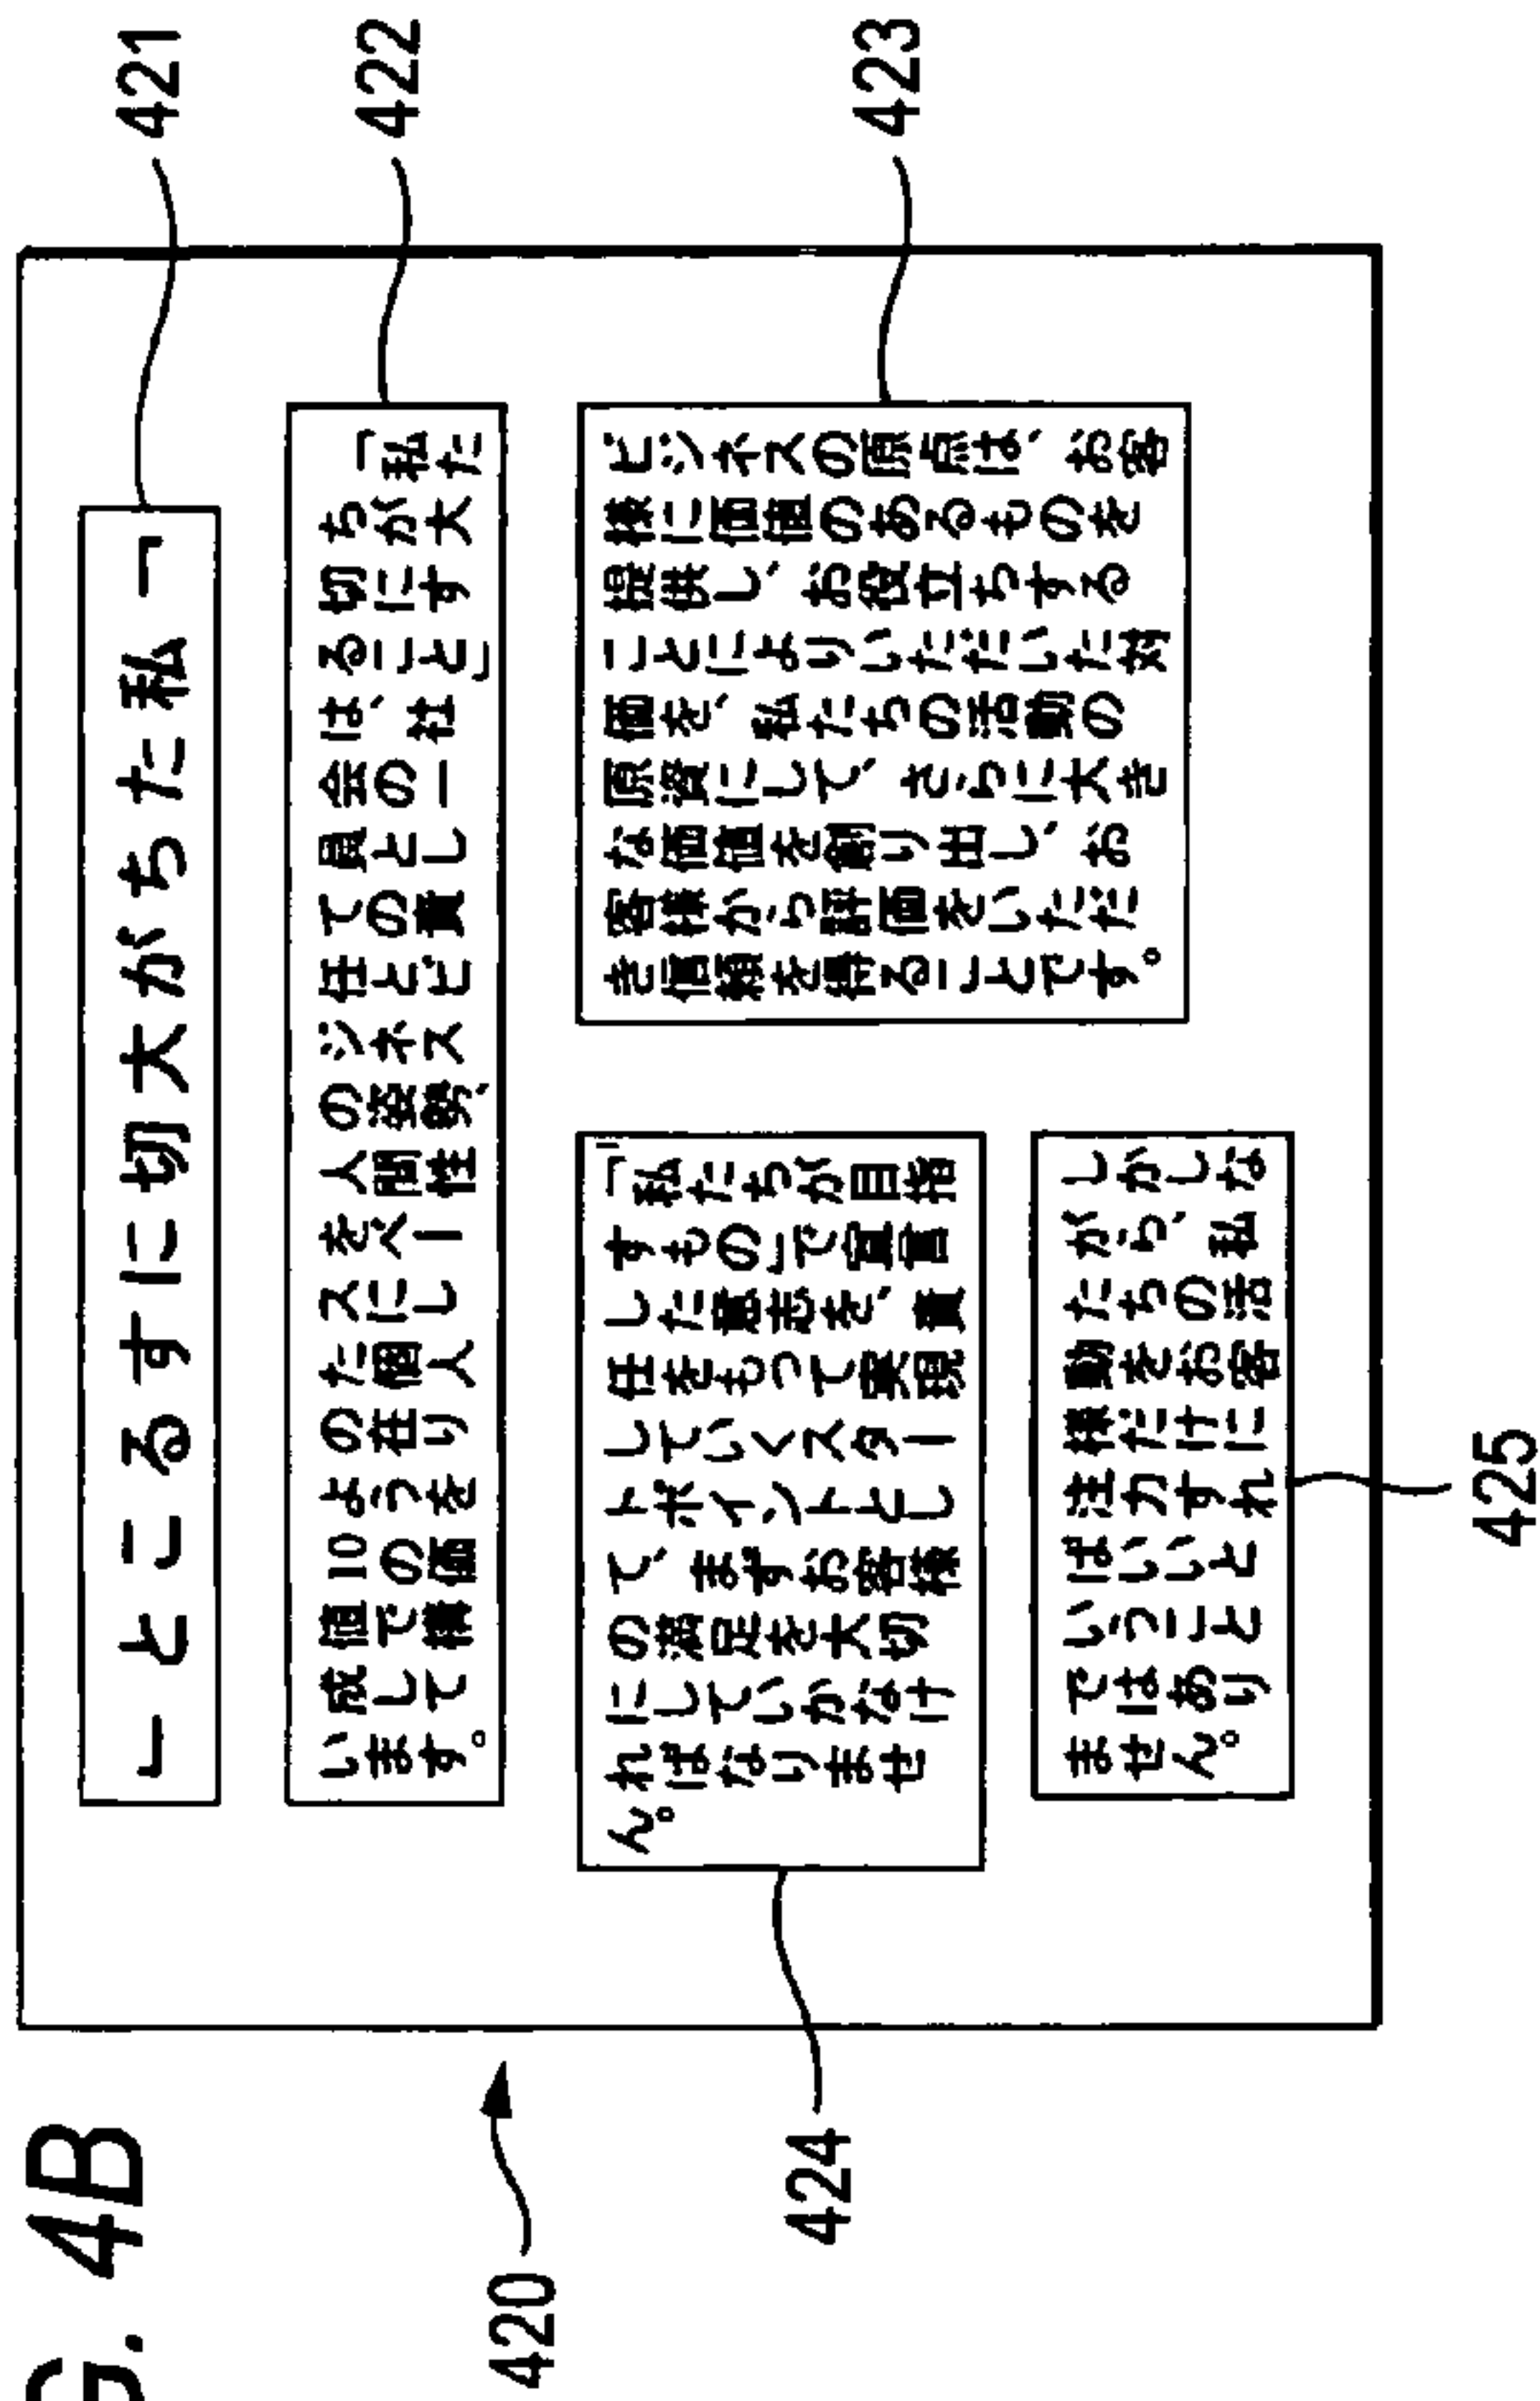 G. 4B
420
421
「私たちが大切にすること」
422
「私た
ちが大
切にす
ること」
は、社
会の一
員とし
ての責
任とビ
ジネス
の姿勢、
人間性
をベー
スにし
た個人
の在り
ようを
10の価
値で構
成して
います。
423
ビジネスの原点は、お客
様に価値のあるものを
提供し、お役立ちする
ことによりいただいた対
価を、私たちの活動の
原資にして、さらに大き
な価値を創り出し、お
客様から評価をいただ
き信頼を得ることです。
424
「私たちが目指
すもの」で宣言
した意志を、責
任をもって実現
していくスター
トポイントとし
て、まずお客様
の満足を大切
にしていかなけ
ればなりませ
ん。
425
しかしな
がら、私
たちの活
動をお客
様だけに
注力すれ
ばいいと
いうこと
ではあり
ません。